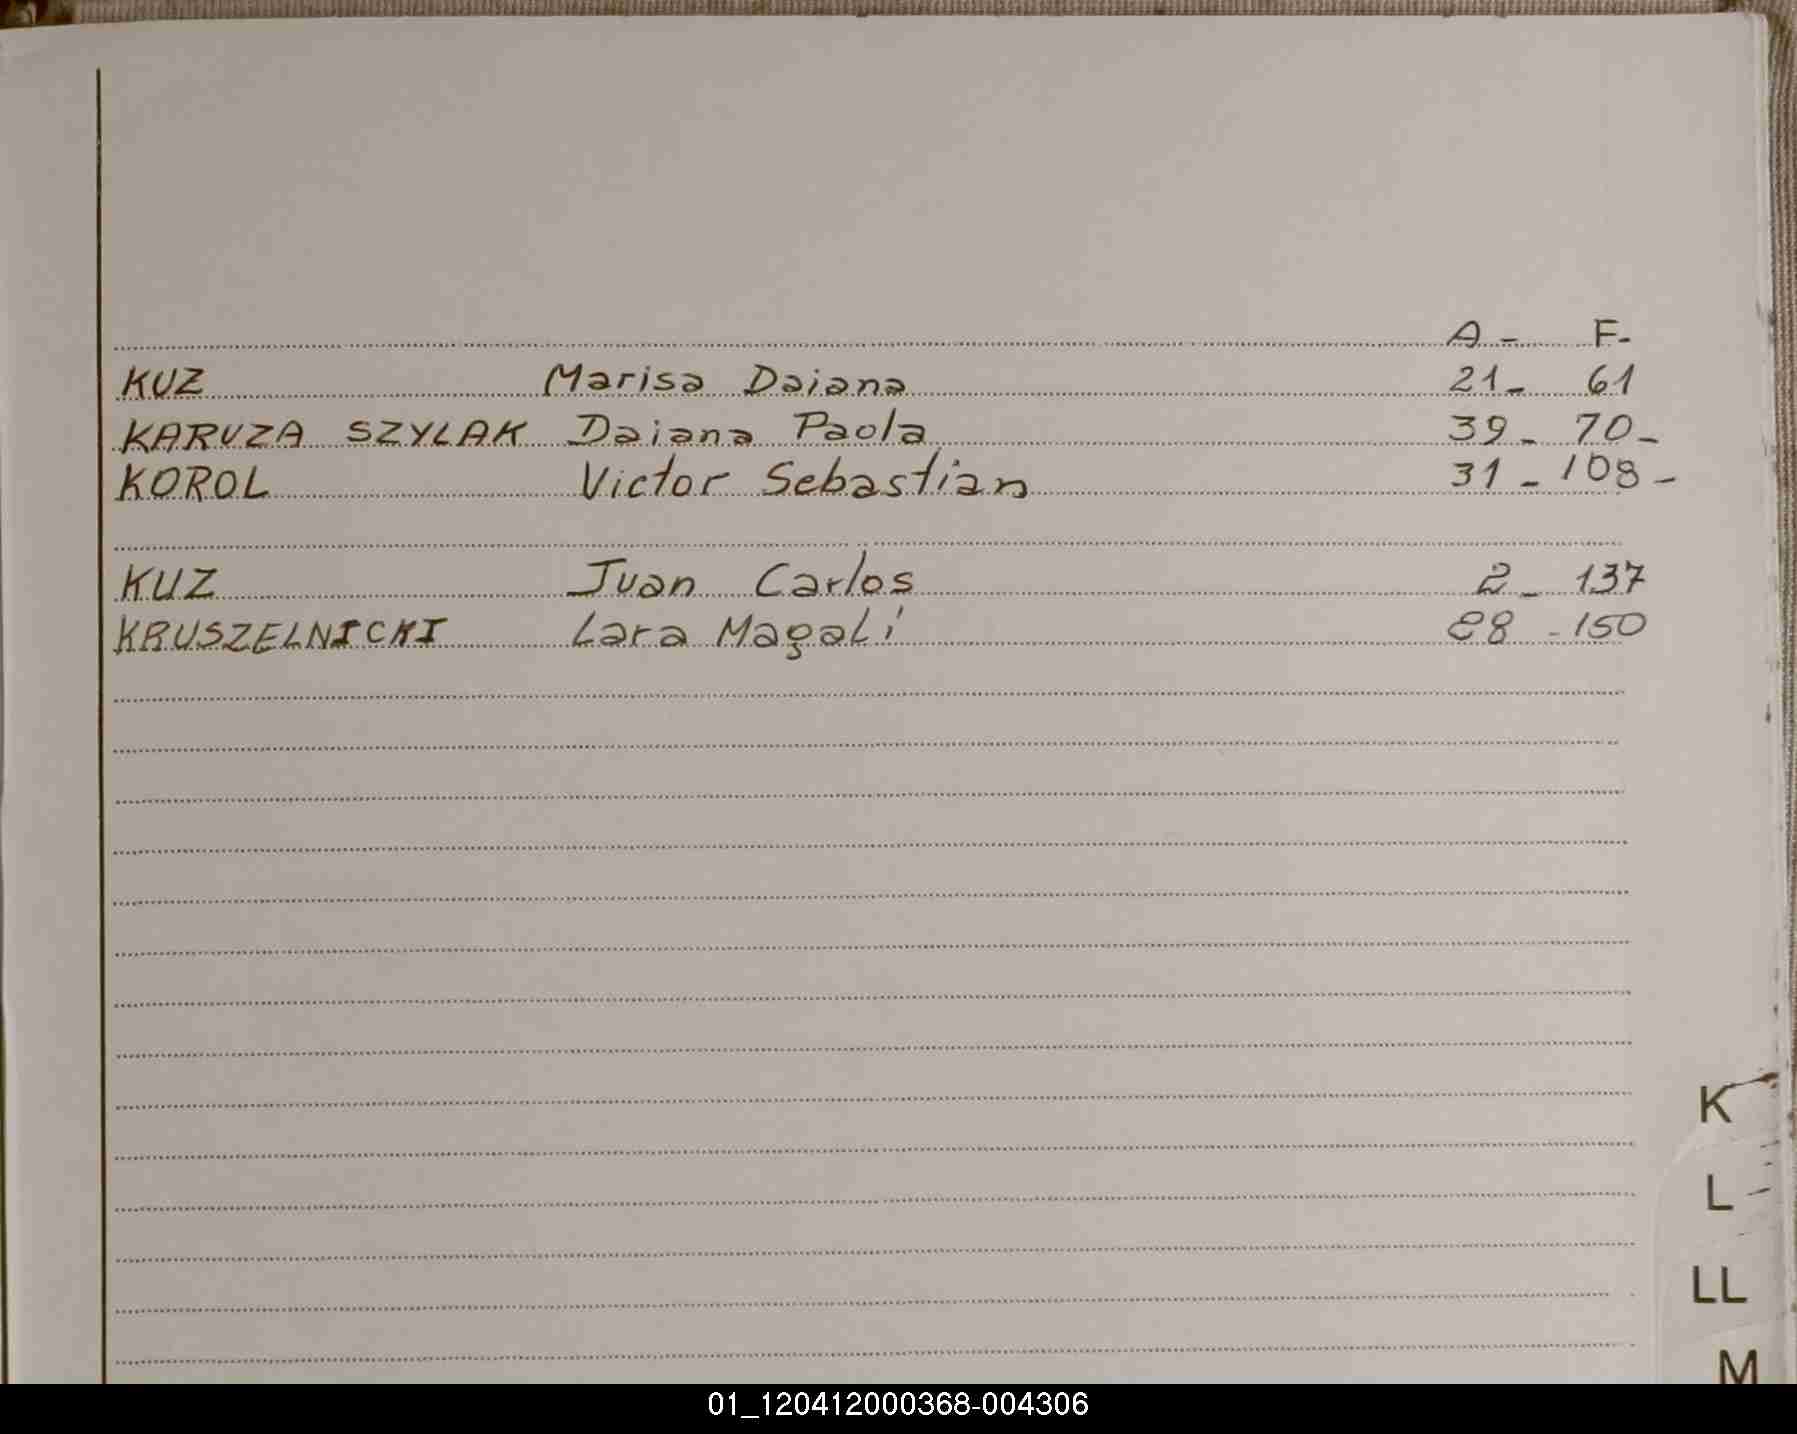 A - F-
KUZ Marisa Daiana 21- 61
KARUZA SZYLAK Daiana Paola 39- 70-
KOROL Victor Sebastian 31-108-
KUZ Juan Carlos 2-137
KRUSZELNICKI Lara Magali 28-150
K
L
LL
M
01_120412000368-004306